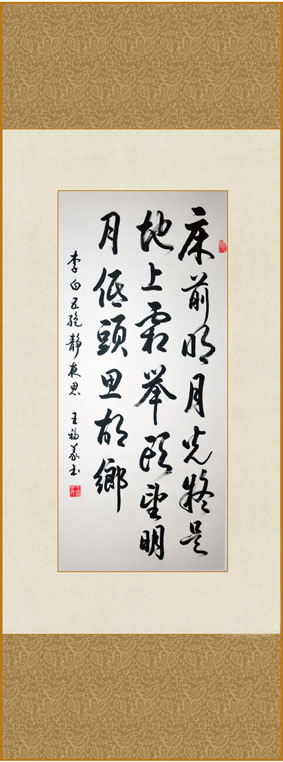 床前明月光疑是
地上霜举頭望明
月低頭思故鄉
李白五絶静夜思 王福義书